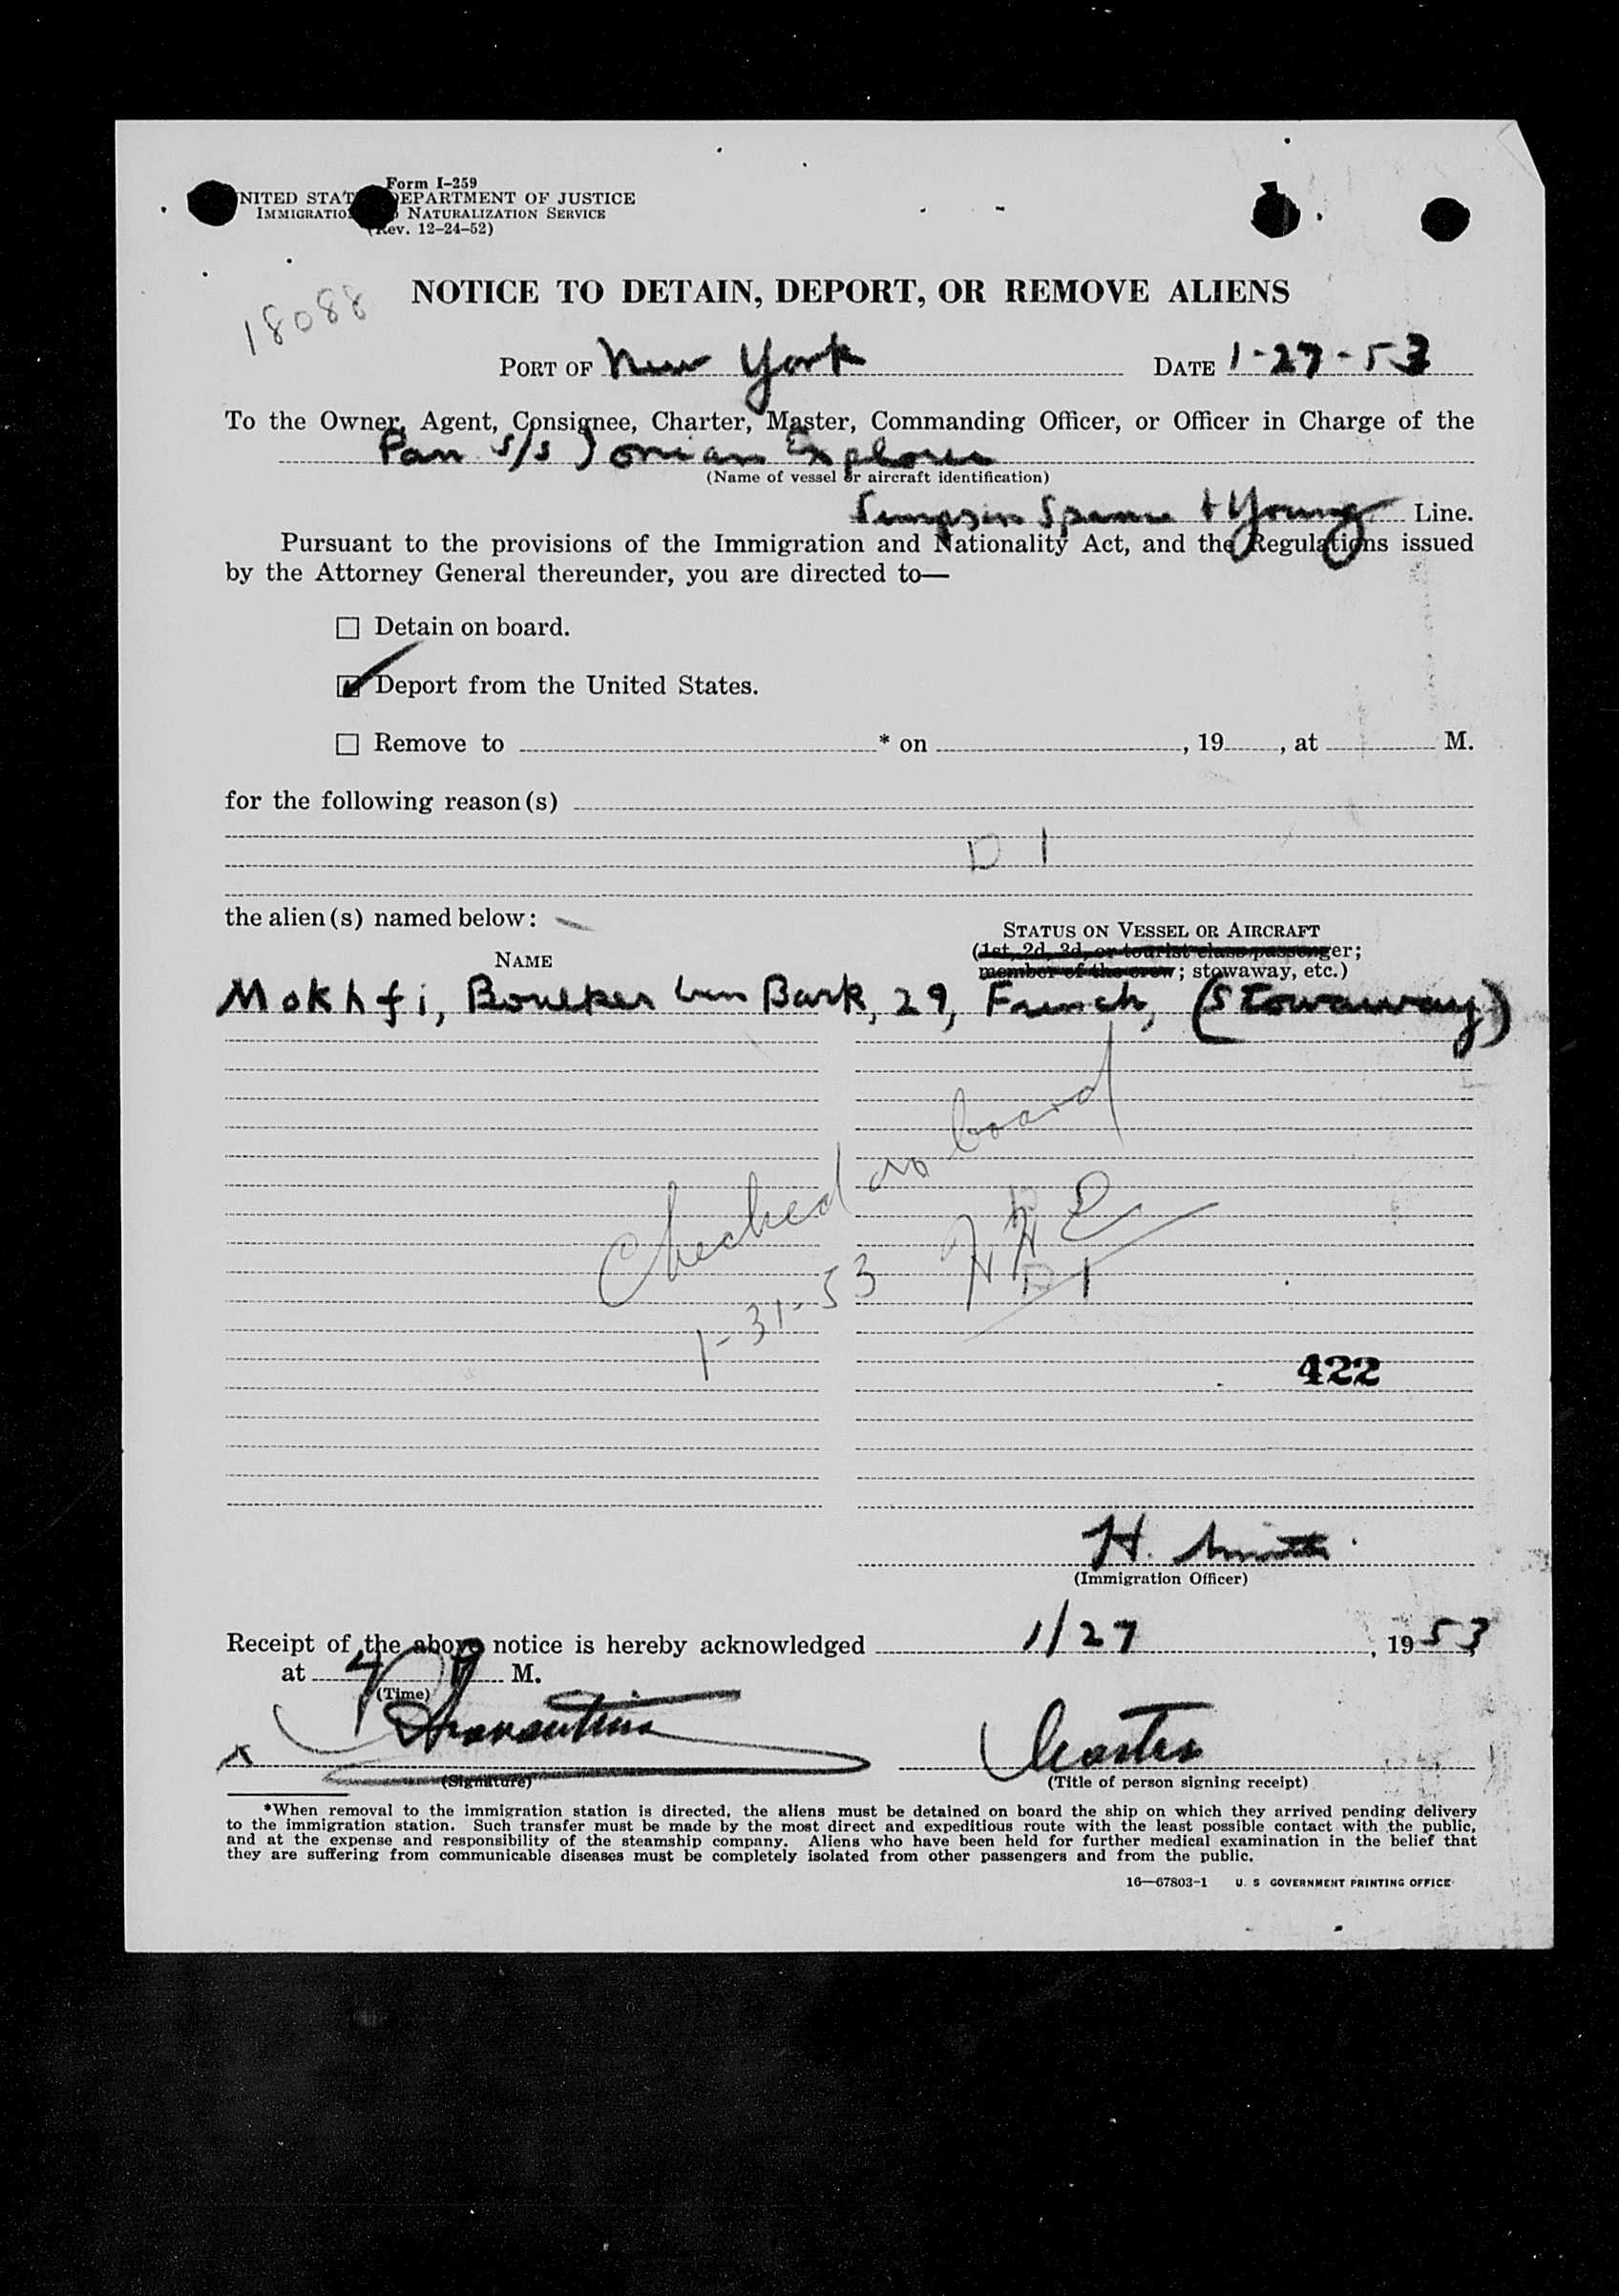 Form I-259
NITED STAT DEPARTMENT OF JUSTICE
IMMIGRATIO NATURALIZATION SERVICE
(Rev. 12-24-52)
18088
NOTICE TO DETAIN, DEPORT, OR REMOVE ALIENS
PORT OF New York DATE 1-27-53
To the Owner, Agent, Consignee, Charter, Master, Commanding Officer, or Officer in Charge of the
Pan s/s Ionian Explorer
(Name of vessel or aircraft identification)
Simpson Spence + Young Line.
Pursuant to the provisions of the Immigration and Nationality Act, and the Regulations issued
by the Attorney General thereunder, you are directed to—
☐ Detain on board.
☑ Deport from the United States.
☐ Remove to * on , 19 , at M.
for the following reason(s)
D 1
the alien(s) named below:
STATUS ON VESSEL OR AIRCRAFT
(1st, 2d, 3d, or tourist class passenger;
NAME
member of the crew; stowaway, etc.)
Mokhfi, Boulker ben Bark, 29, French, (Stowaway)
Checked on board
1-31-53
D 1
422
H. Smith
(Immigration Officer)
Receipt of the above notice is hereby acknowledged 1/27, 1953
at 4 P M.
(Time)
x
Master
(Signature)
(Title of person signing receipt)
*When removal to the immigration station is directed, the aliens must be detained on board the ship on which they arrived pending delivery
to the immigration station. Such transfer must be made by the most direct and expeditious route with the least possible contact with the public,
and at the expense and responsibility of the steamship company. Aliens who have been held for further medical examination in the belief that
they are suffering from communicable diseases must be completely isolated from other passengers and from the public.
16—67803-1 U. S GOVERNMENT PRINTING OFFICE